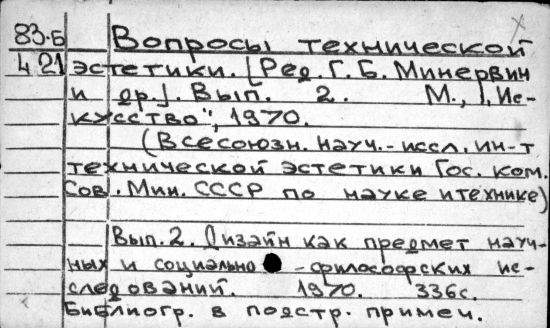 83-Б Вопросы технической
4 21 эстетики. [Ред. Г. Б. Минервин
и др]. Вып. 2. М., „Ис-
кусство", 1970.
(Всесоюзн. науч.-иссл. ин-т
технической эстетики Гос. ком.
Сов. Мин. СССР по науке и технике)
Вып. 2. Дизайн как предмет науч-
ных и социально-философских ис-
следований. 1970. 336с.
Библиогр. в подстр. примеч.